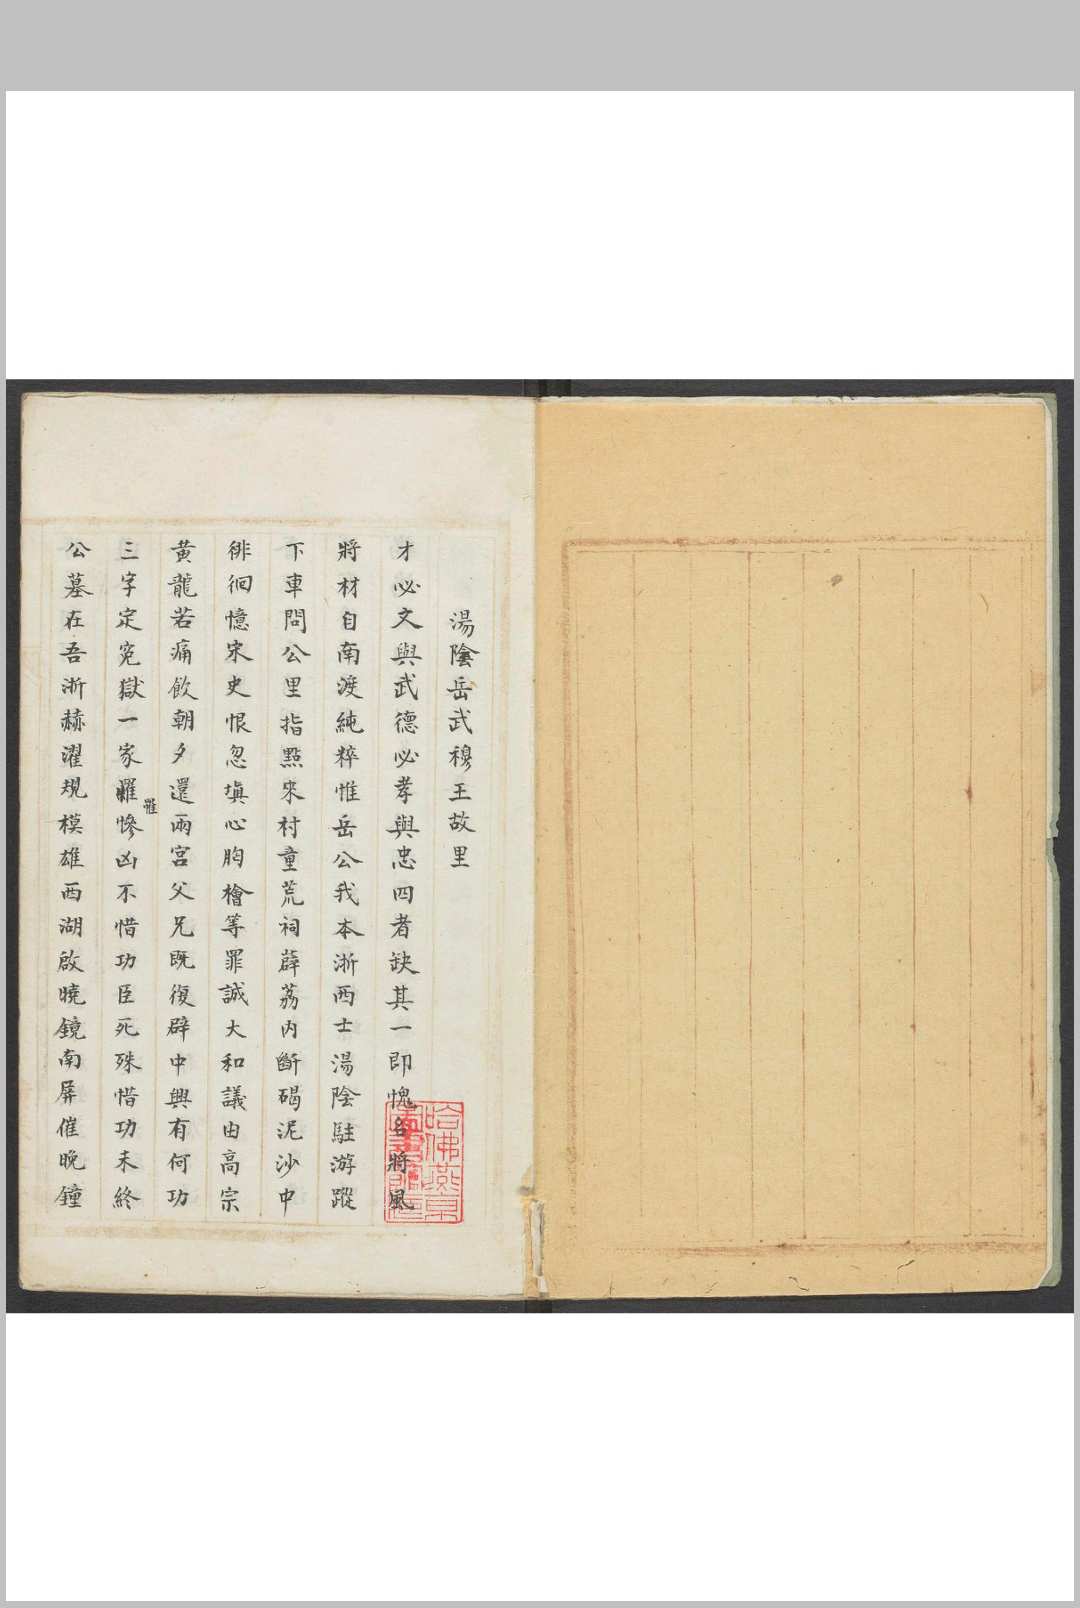 湯陰岳武穆王故里
才必文與武德必孝與忠四者缺其一即愧名將風
將材自南渡純粹惟岳公我本浙西士湯陰駐游蹤
下車問公里指點來村童荒祠薜荔內斷碣泥沙中
徘徊憶宋史恨忽填心胸檜等罪誠大和議由高宗
黄龍若痛飲朝夕還兩宮父兄既復辟中興有何功
三字定寃獄一家罹慘凶不惜功臣死殊惜功未終
罹
公墓在吾浙赫濯規模雄西湖啟曉鏡南屏催晚鐘
哈佛燕京
圖書館